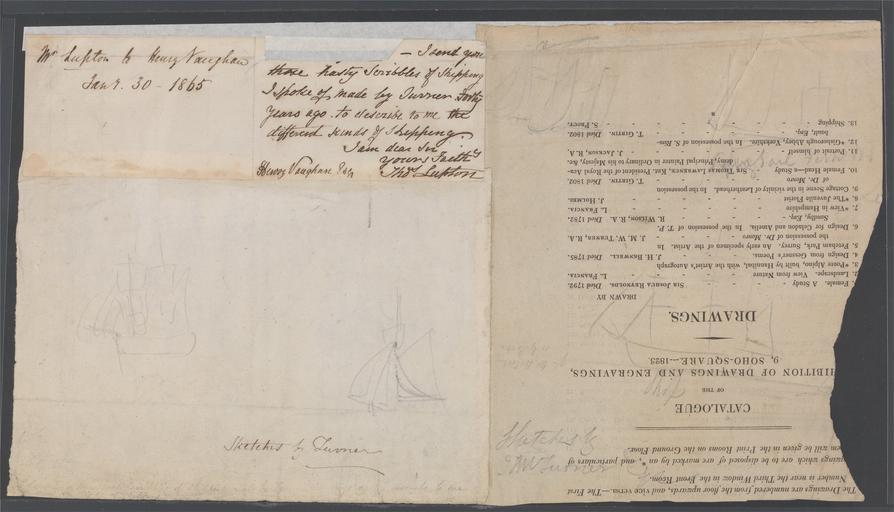 Mr Lupton to Henry Vaughan
Jany. 30 - 1865
- I send you
those hasty Scribbles of Shipping
I spoke of made by Turner Forty
Years ago to describe to me the
different kinds of Shipping
I am dear Sir
yours Faithy
Thos Lupton
Henry Vaughan Esq
Sketches by Turner
Sketches by
J M W Turner
The Drawings are numbered from the floor upwards, and vice versa.—The First
Number is near the Third Window in the Front Room.
which are to be disposed of are marked by an *, and particulars of
will be given in the Print Rooms on the Ground Floor.
CATALOGUE
OF THE
HIBITION OF DRAWINGS AND ENGRAVINGS,
9, SOHO-SQUARE.—1823.
DRAWINGS.
DRAWN BY
1. Female. A Study - Sir Joshua Reynolds. Died 1792
2. Landscape. View from Nature - L. Francia
3. *Ponte Alpino, built by Hannibal, with the Artist's Autograph
4. Design from Gesner's Poems. - J. H. Benwell. Died 1785
5. Petcham Park, Surrey. An early specimen of the Artist. In
the possession of Dr. Monro - J. M. W. Turner, R.A.
6. Design for Celadon and Amelia. In the possession of T. P.
Smilly, Esq. - R. Wilson, R.A. Died 1782
7. *View in Hampshire - L. Francia
8. *The Juvenile Florist - J. Holmes
9. Cottage Scene in the vicinity of Leatherhead. In the possession
of Dr. Monro - T. Girtin. Died 1802
10. Female Head—a Study - Sir Thomas Lawrence, Knt. President of the Royal Aca-
demy, Principal Painter in Ordinary to his Majesty, &c.
11. Portrait of himself - J. Jackson, R.A.
12. *Guisborough Abbey, Yorkshire. In the possession of
Esq. - T. Girtin. Died 1802
13. Shipping - S. Prout.